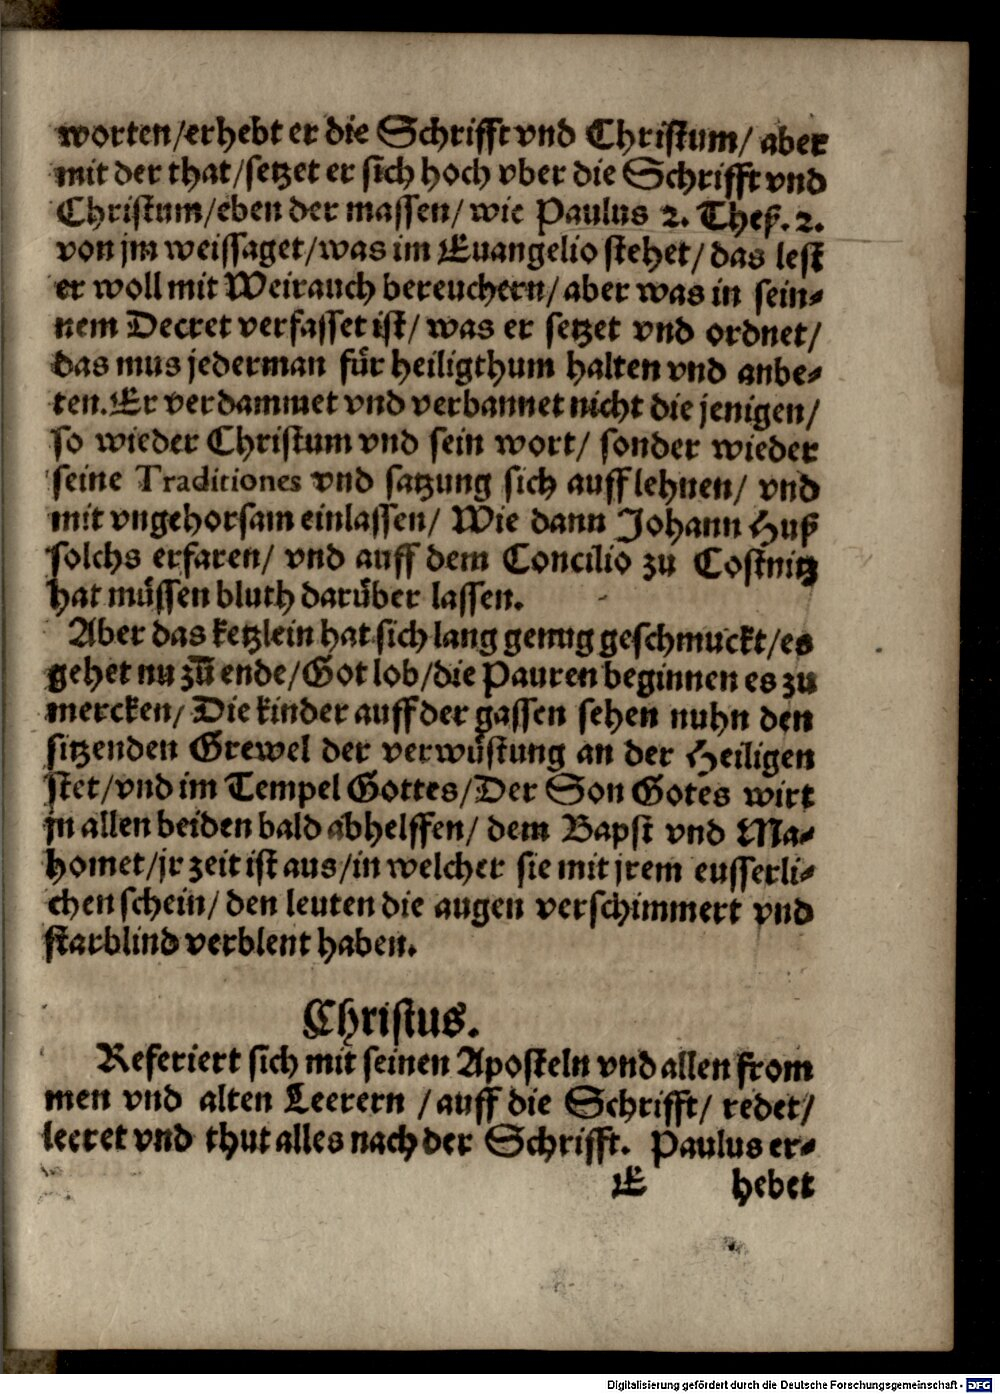 worten/erhebt er die Schrifft vnd Christum/ aber
mit der that/setzet er sich hoch vber die Schrifft vnd
Christum/eben der massen/ wie Paulus 2. Theß. 2.
von jm weissaget/was im Euangelio stehet/ das lest
er woll mit Weirauch bereuchern/ aber was in sein-
nem Decret verfasset ist/ was er setzet vnd ordnet/
das mus jederman für heiligthum halten vnd anbe-
ten. Er verdammet vnd verbannet nicht die jenigen/
so wieder Christum vnd sein wort/ sonder wieder
seine Traditiones vnd satzung sich auff lehnen/ vnd
mit vngehorsam einlassen/ Wie dann Johann Huß
solchs erfaren/ vnd auff dem Concilio zu Costnitz
hat müssen bluth darüber lassen.
Aber das ketzlein hat sich lang genug geschmuckt/es
gehet nu zū ende/Got lob/die Pauren beginnen es zu
mercken/ Die kinder auff der gassen sehen nuhn den
sitzenden Grewel der verwüstung an der Heiligen
stet/vnd im Tempel Gottes/Der Son Gotes wirt
jn allen beiden bald abhelffen/ dem Bapst vnd Ma-
homet/jr zeit ist aus/in welcher sie mit jrem eusserli-
chen schein/ den leuten die augen verschimmert vnd
starblind verblent haben.
Christus.
Referiert sich mit seinen Aposteln vnd allen from
men vnd alten Leerern /auff die Schrifft/ redet/
leeret vnd thut alles nach der Schrifft. Paulus er-
E hebet
Digitalisierung gefördert durch die Deutsche Forschungsgemeinschaft - DFG